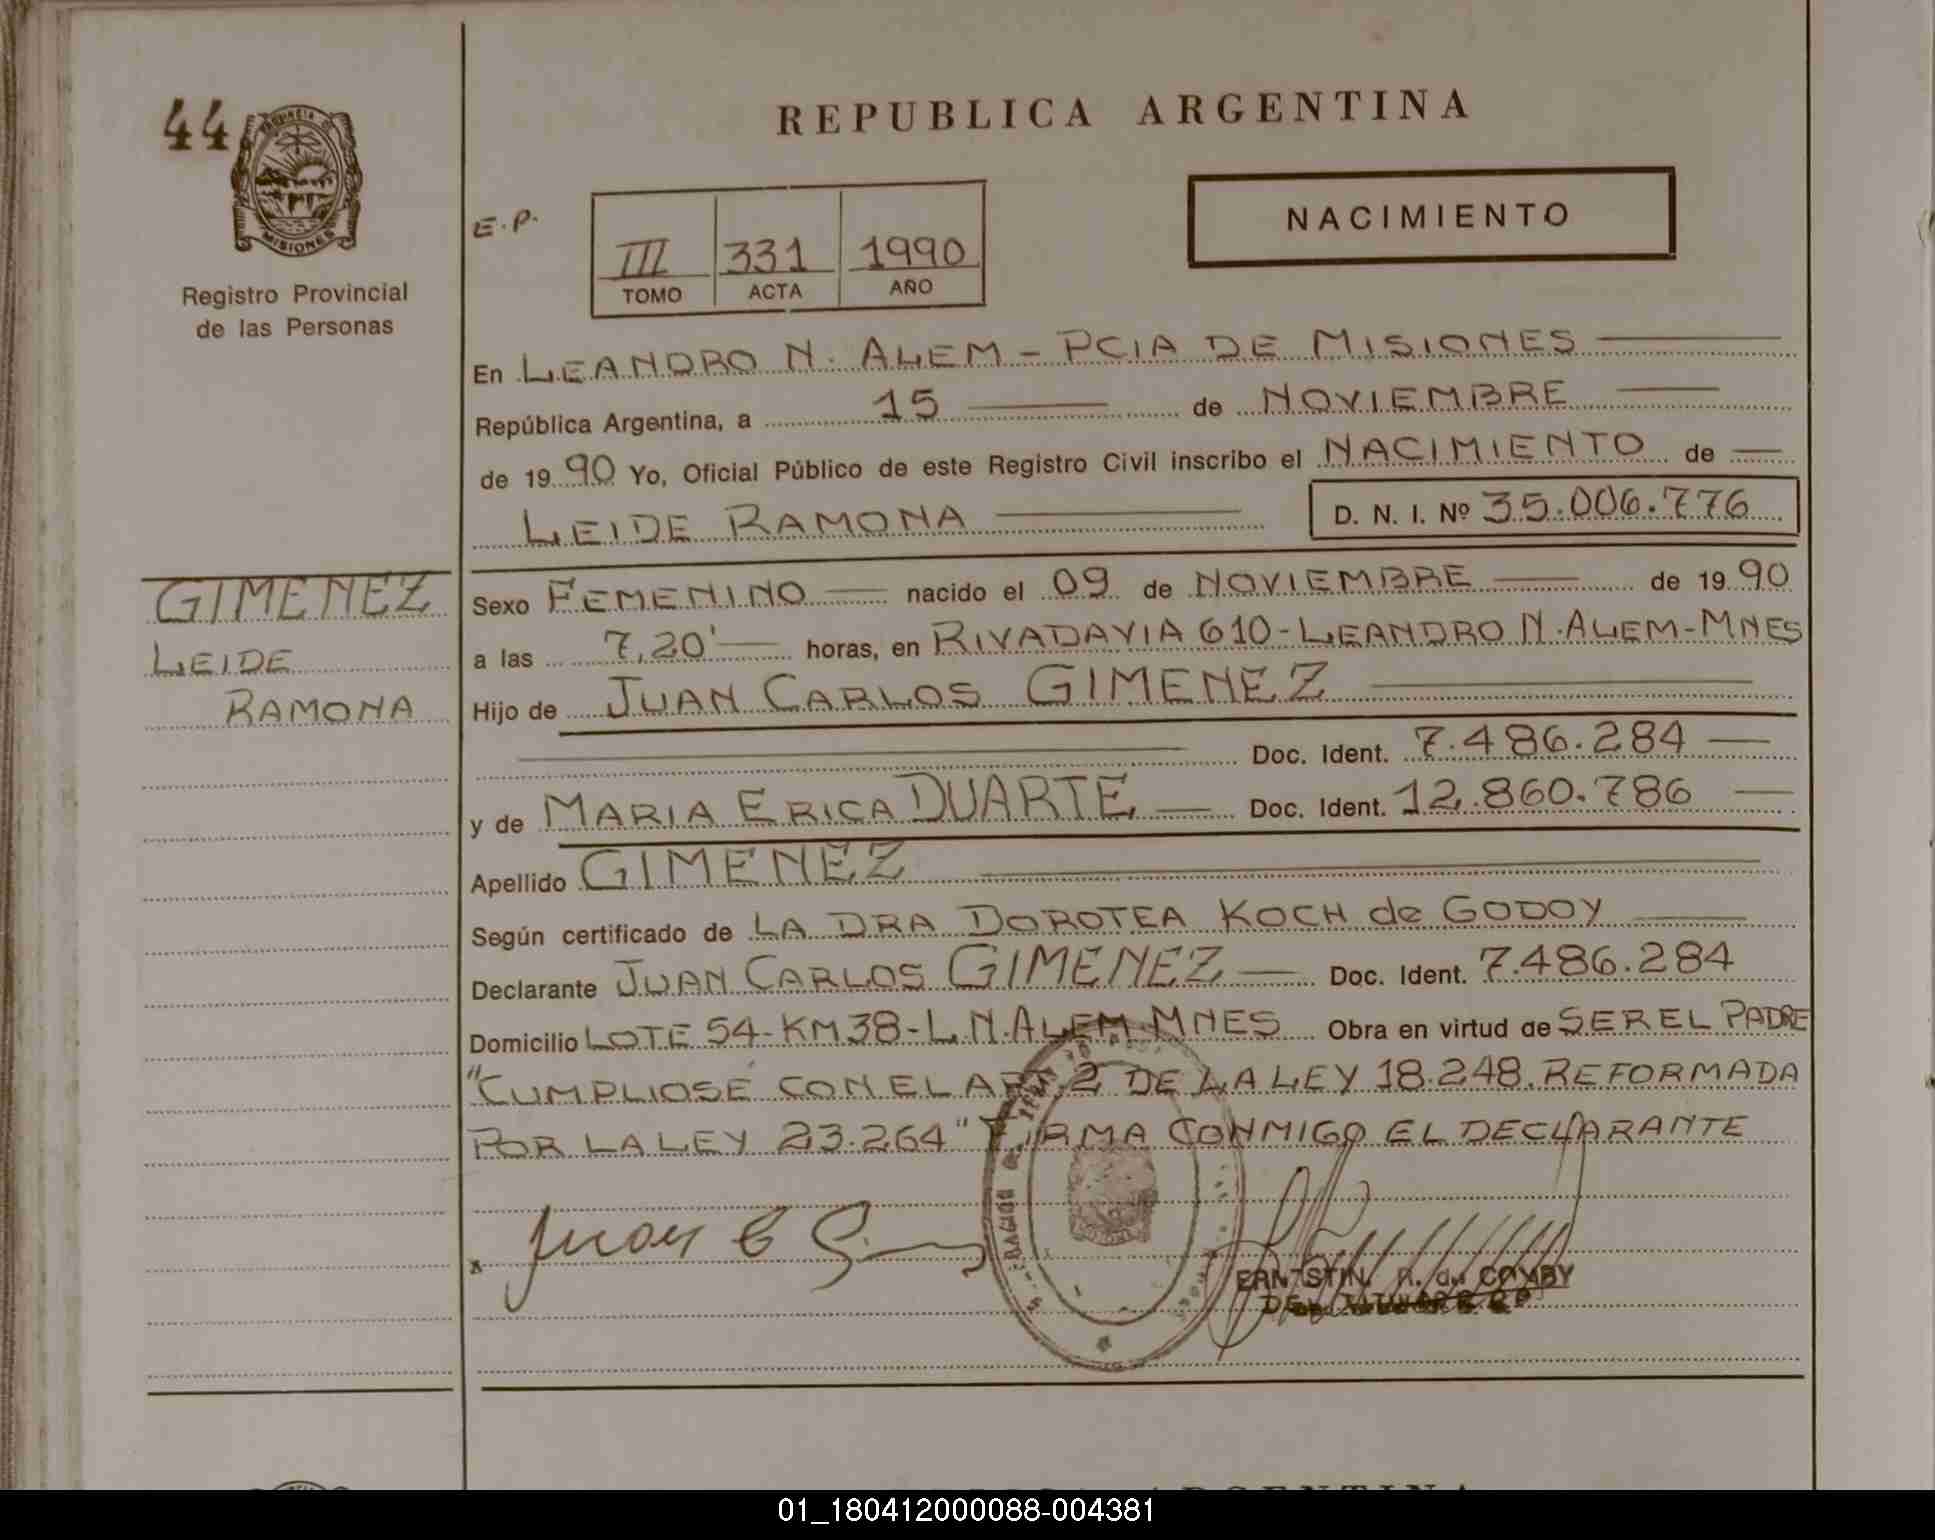 44
PROVINCIA DE
MISIONES
Registro Provincial
de las Personas
REPUBLICA ARGENTINA
NACIMIENTO
E.P.
III 331 1990
TOMO ACTA AÑO
En LEANDRO N. ALEM - PCIA DE MISIONES
República Argentina, a 15 de NOVIEMBRE
de 19 90 Yo, Oficial Público de este Registro Civil inscribo el NACIMIENTO de
LEIDE RAMONA D. N. I. Nº 35.006.776
GIMENEZ
LEIDE
RAMONA
Sexo FEMENINO nacido el 09 de NOVIEMBRE de 19 90
a las 7,20' horas, en RIVADAVIA 610 - LEANDRO N. ALEM - MNES
Hijo de JUAN CARLOS GIMENEZ
Doc. Ident. 7.486.284
y de MARIA ERICA DUARTE Doc. Ident. 12.860.786
Apellido GIMENEZ
Según certificado de LA DRA DOROTEA KOCH de GODOY
Declarante JUAN CARLOS GIMENEZ Doc. Ident. 7.486.284
Domicilio LOTE 54 - KM 38 - L.N. ALEM MNES Obra en virtud de SER EL PADRE
"CUMPLIOSE CON EL ART. 2 DE LA LEY 18.248. REFORMADA
POR LA LEY 23.264" FIRMA CONMIGO EL DECLARANTE
Juan C G
01_180412000088-004381